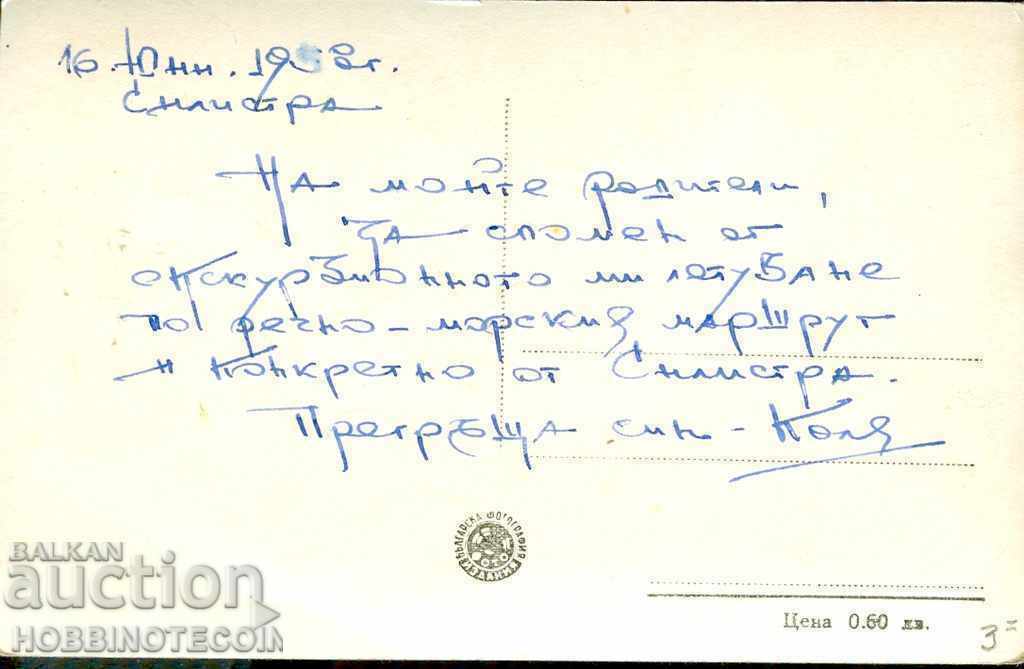 16. Юни. 1958г.
Силистра
На моите родители,
За спомен от
екскурзионното ми летуване
по речно-морския маршрут
и конкретно от Силистра.
Прегръща син - Коля
БЪЛГАРСКА ФОТОГРАФИЯ
ИЗДАНИЯ
BALKAN
auction
HOBBINOTECOIN
Цена 0.60 лв.
3